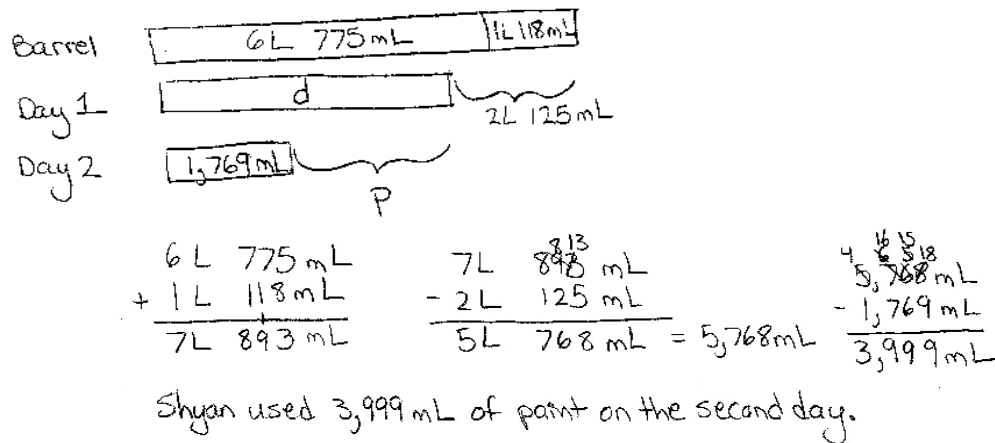 Barrel 6 L 775 mL 1L 118 mL
Day 1 d
2L 125 mL
Day 2 1,769 mL
P
6 L 775 mL
+ 1 L 118 mL
7L 893 mL
8 13
7L 893 mL
- 2L 125 mL
5L 768 mL = 5,768mL
16 15
4 6 5 18
5,768 mL
- 1,769 mL
3,999 mL
Shyan used 3,999 mL of paint on the second day.